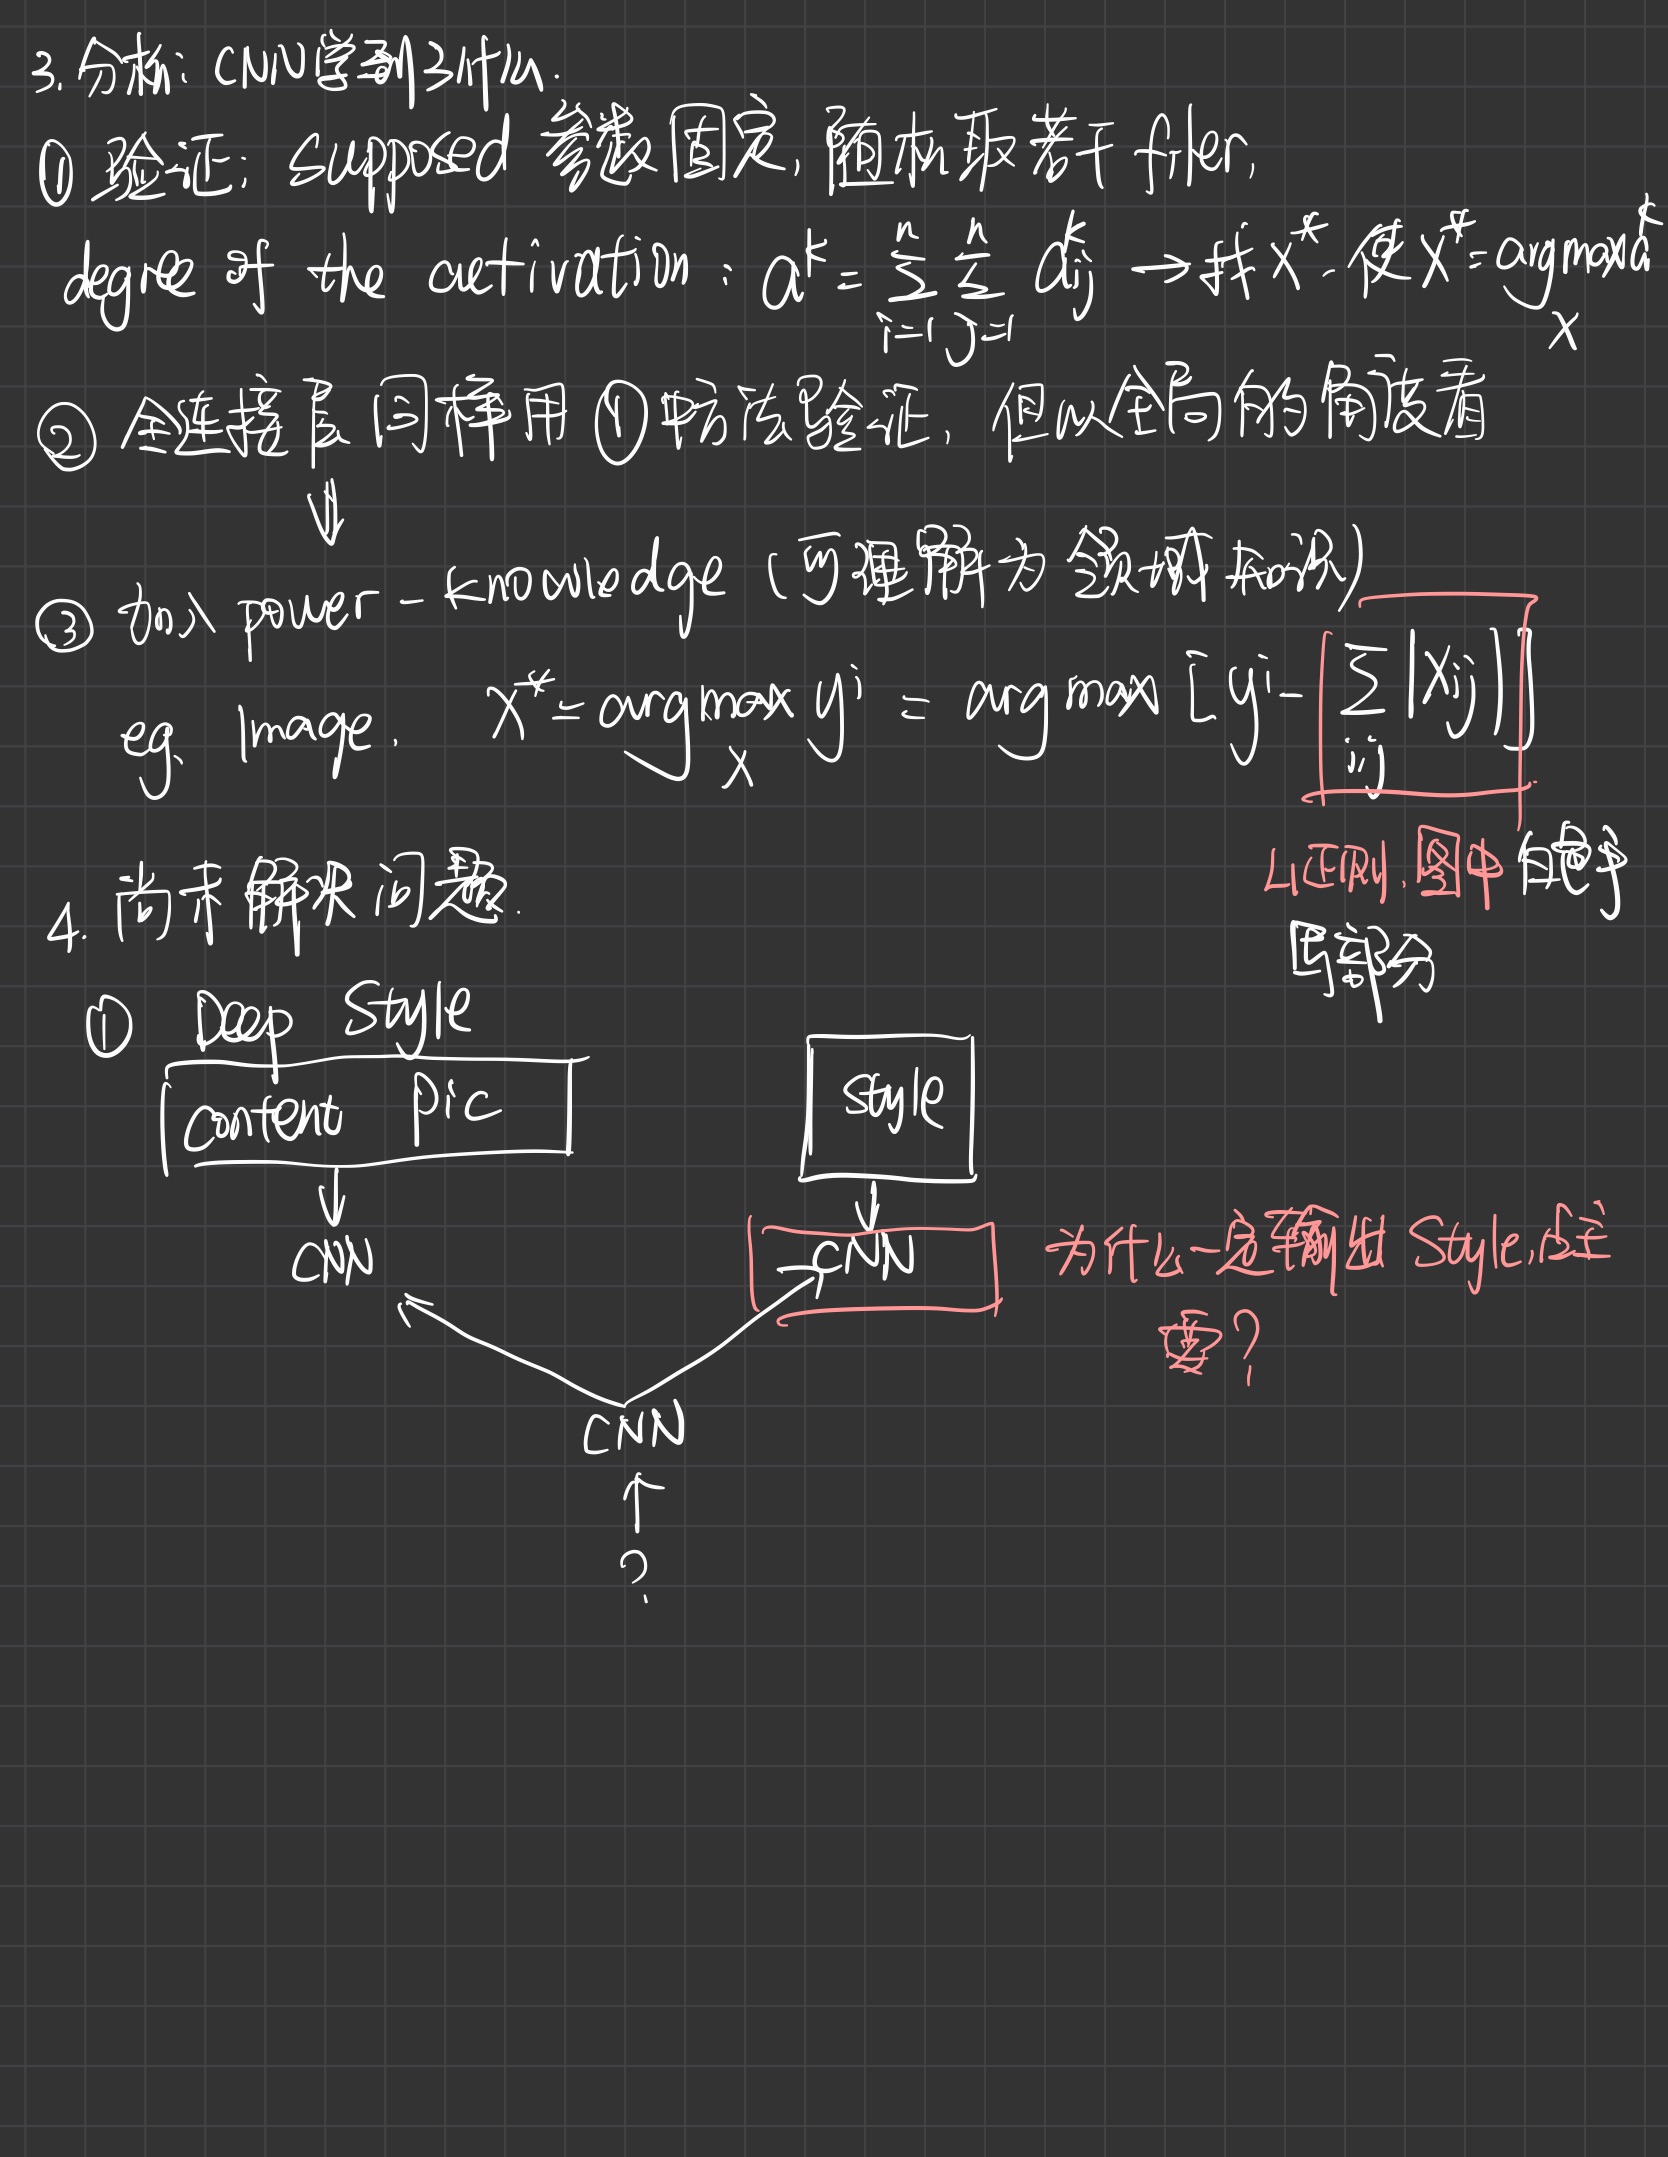 3. 分析: CNN学到了什么.
① 验证: supposed 参数固定, 随机取若干 filer,
degree of the activation : a^k = \sum_{i=1}^{n} \sum_{j=1}^{n} a_{ij}^k → 找 x^*, 使 x^* = arg max_x a^k
② 全连接层 同样用 ①中方法验证, 但以全局的角度看
↓
③ 加入 power-knowledge (可理解为 领域知识)
eg. Image. x^* = arg max_x y^i = arg max [y^i - \sum_{i,j} |x_{ij}|]
L1正则, 图中 白色手
写部分
4. 尚未解决问题.
① Deep Style
content Pic
style
CNN
CNN
为什么一定输出 Style,
要?
CNN
?